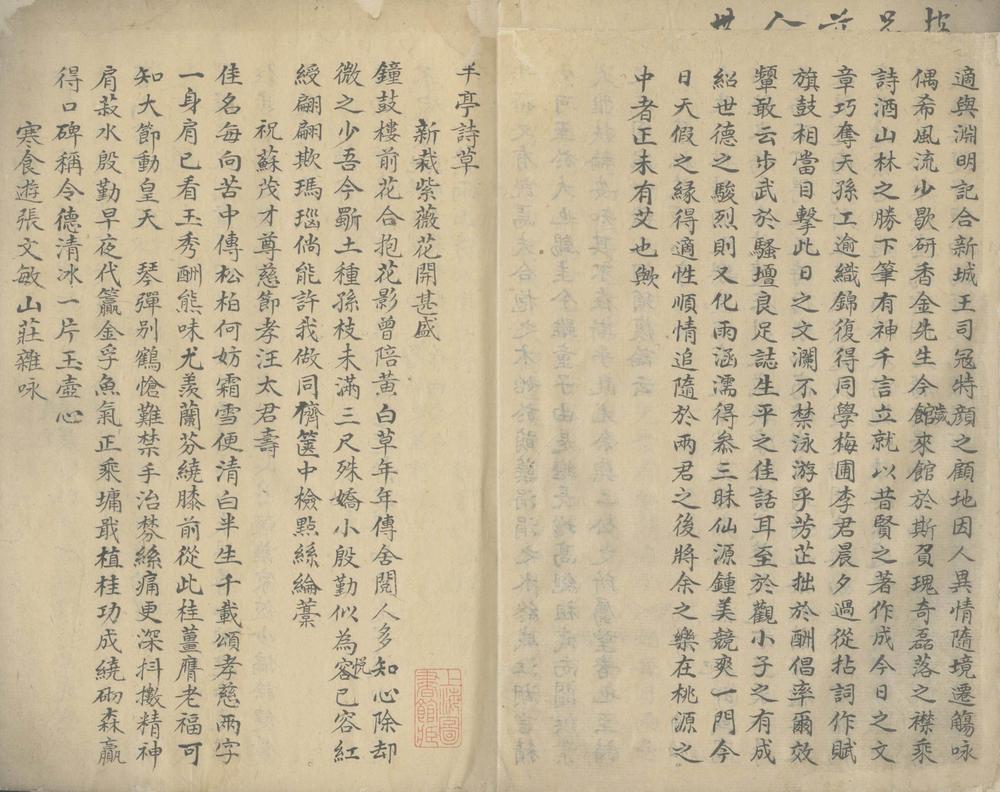 適與淵明記合新城王司冦特顏之顧地因人異情隨境遷觴咏
偶希風流少歇研香金先生今歲館來館於斯負瑰奇磊落之襟乘
詩酒山林之勝下筆有神千言立就以昔賢之著作成今日之文
章巧奪天孫工逾織錦復得同學梅圃李君晨夕過從拈詞作賦
旗鼓相當目擊此日之文瀾不禁泳游乎芳芷拙於酬倡率爾效
顰敢云步武於騷壇良足誌生平之佳話耳至於觀小子之有成
紹世德之駿烈則又化雨涵濡得叅三昧仙源鍾美競爽一門今
日天假之緣得適性順情追隨於兩君之後將余之樂在桃源之
中者正未有艾也歟
半亭詩草
新栽紫薇花開甚盛
鐘鼓樓前花合抱花影曾陪黃白草年年傳舍閱人多知心除却
微之少吾今斸土種孫枝未滿三尺殊嬌小殷勤似為悅已容紅
綬翩翩欺瑪瑙倘能許我做同儕篋中檢點絲綸藁
祝蘇茂才尊慈節孝汪太君壽
佳名每向苦中傳松柏何妨霜雪便清白半生千載頌孝慈兩字
一身肩已看玉秀酬熊味尤羨蘭芬繞膝前從此桂薑膺老福可
知大節動皇天 琴彈別鶴愴難禁手治棼絲痛更深抖擻精神
肩菽水殷勤早夜代籯金孚魚氣正乘墉戢植桂功成繞砌森贏
得口碑稱令德清冰一片玉壺心
寒食遊張文敏山莊雜咏
上海圖
書館印